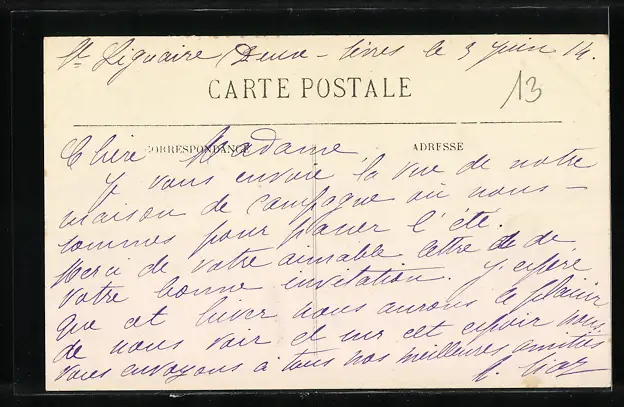 St Liguaire (Deux-Sèvres le 3 juin 14.
CARTE POSTALE
13
CORRESPONDANCE
ADRESSE
Chère Madame
Je vous envoie la vue de notre
maison de campagne où nous -
sommes pour passer l'été.
Merci de votre aimable lettre et de
votre bonne invitation. J'espère
que cet hiver nous aurons le plaisir
de nous voir et sur cet espoir nous
vous envoyons à tous nos meilleures amitiés